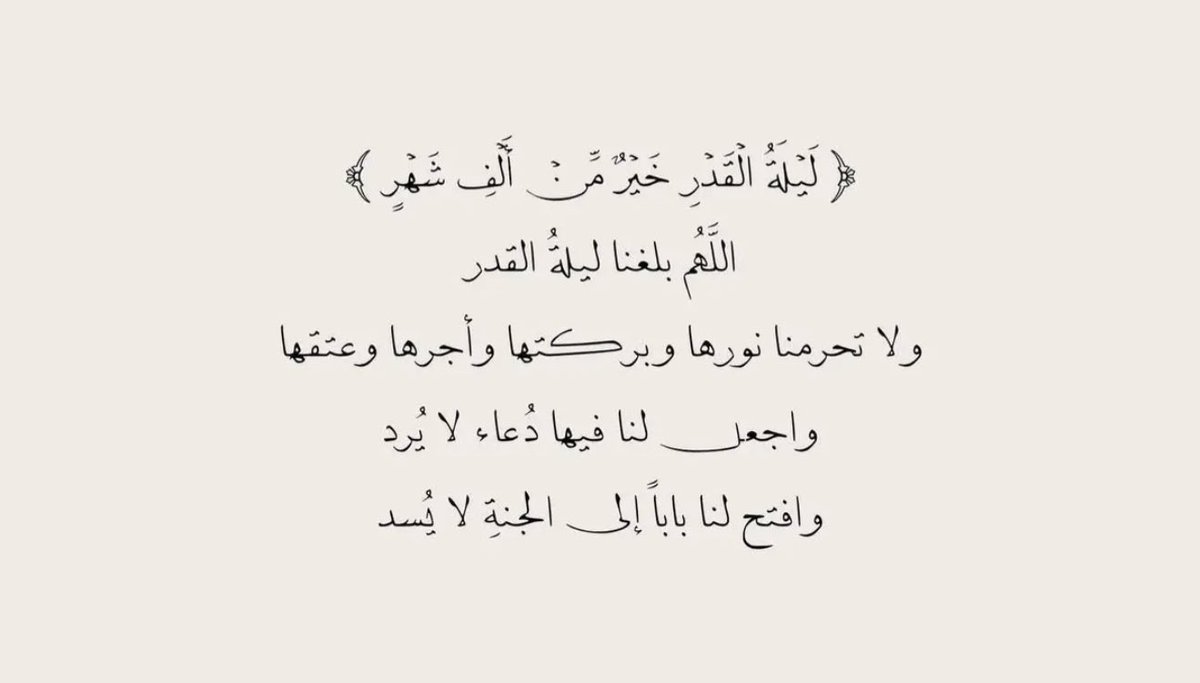 ﴿ لَيْلَةُ الْقَدْرِ خَيْرٌ مِّنْ أَلْفِ شَهْرٍ ﴾
اللَّهُم بلغنا ليلةُ القدر
ولا تحرمنا نورها وبركتها وأجرها وعتقها
واجعل لنا فيها دُعاء لا يُرد
وافتح لنا باباً إلى الجنةِ لا يُسد